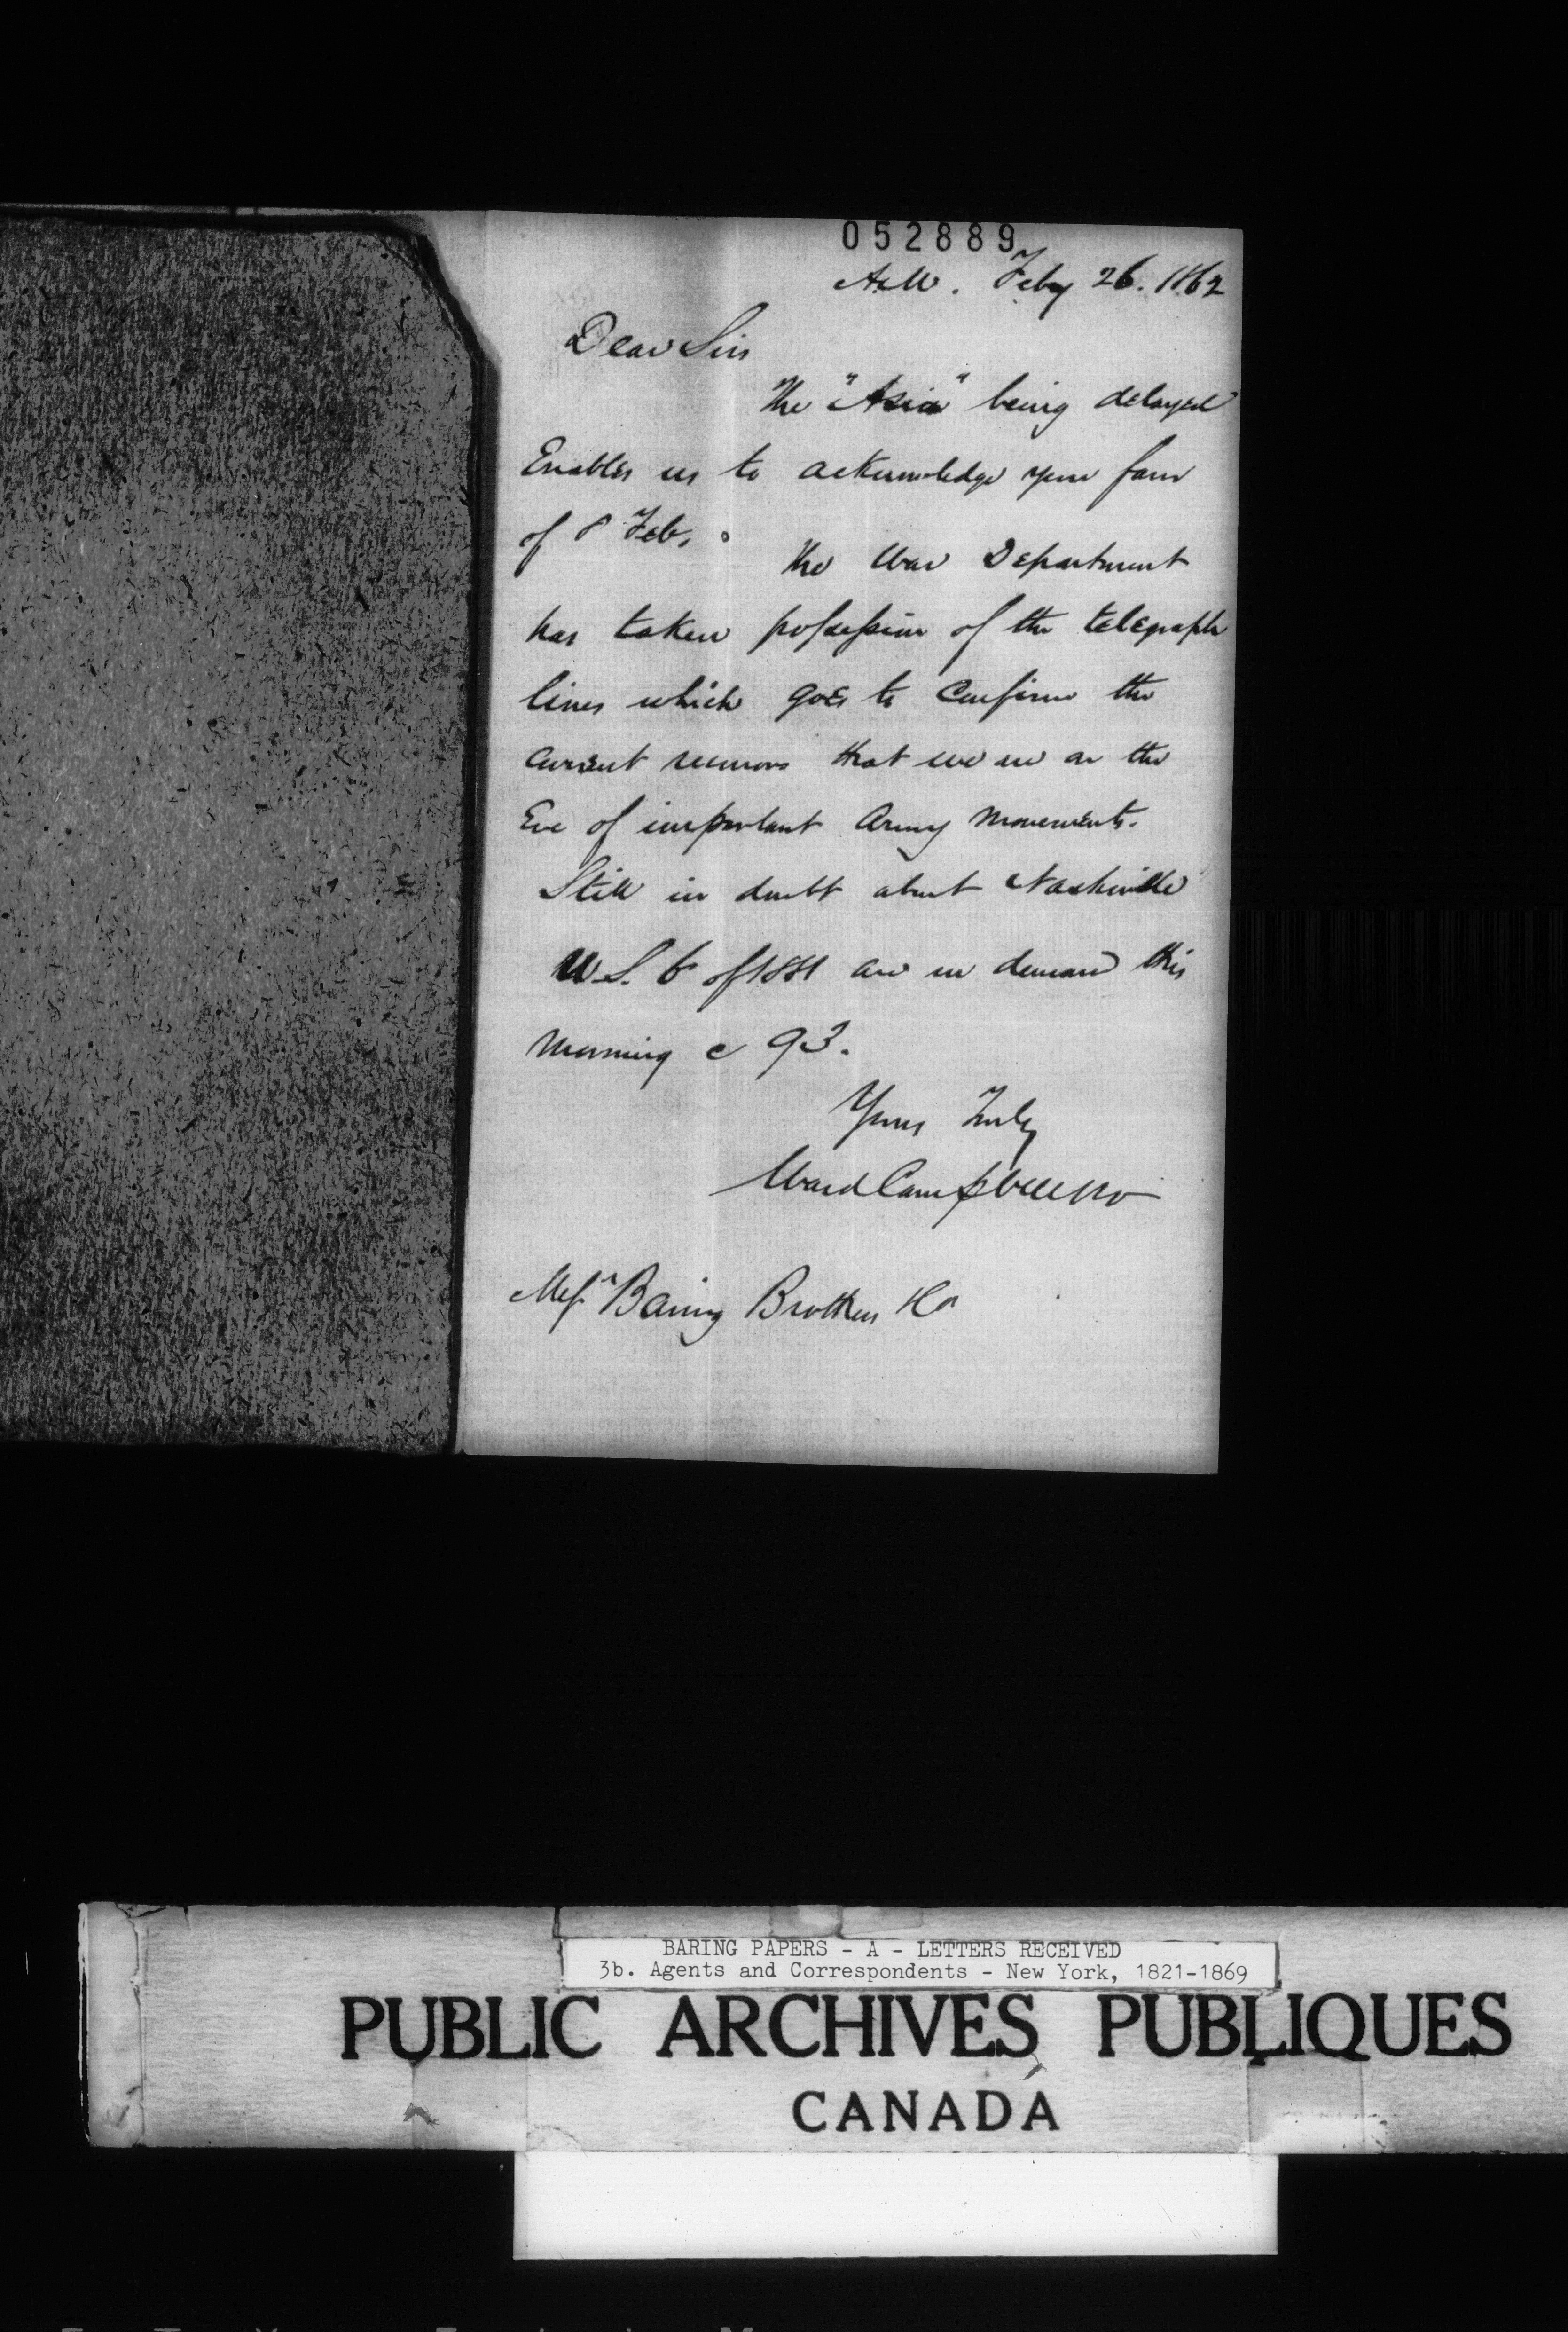 052889
A.M. Feby 26. 1862
Dear Sirs
The "Asia" being delayed
Enables us to acknowledge your favr
of 8 Feb.
The War Department
has taken possession of the telegraph
lines which goes to Confirm the
Current rumors that we are on the
Eve of important Army Movements.
Still in doubt about Nashville
U.S. 6s of 1881 are in demand this
Morning @ 93.
Yours Truly
Ward Campbell & Co
Messrs Baring Brothers & Co
BARING PAPERS - A - LETTERS RECEIVED
3b. Agents and Correspondents - New York, 1821-1869
PUBLIC ARCHIVES PUBLIQUES
CANADA